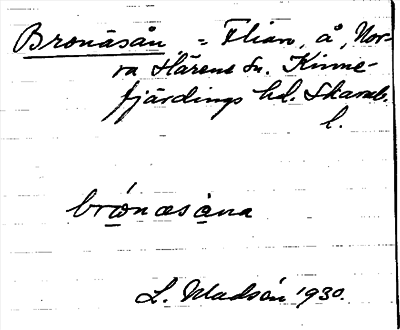 Bronäsån = Flian, å, Nor-
ra Härene sn. Kinne-
fjärdings hd. Skarab.
l.
brώnæsåna
L. Madsén 1930.